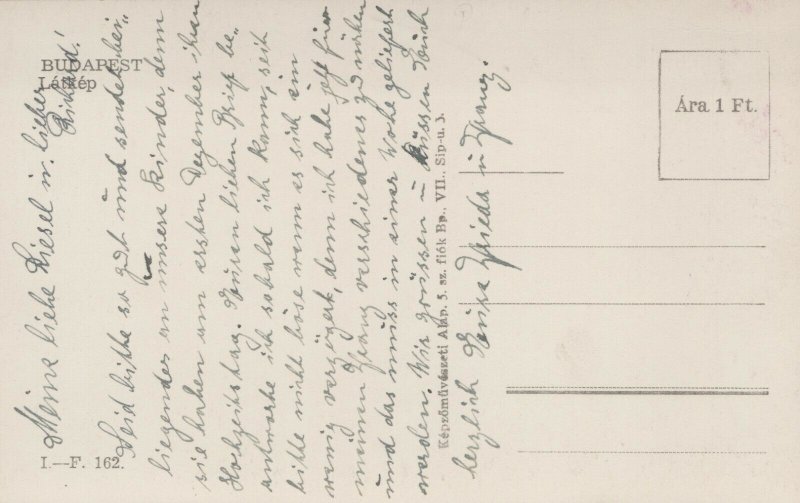 BUDAPEST
Látkép
Ára 1 Ft.
Meine liebe Liesel u. lieber
Richard!
Seid bitte so gut und sendet bei-
liegendes an unsere Kinder, denn
sie haben am ersten Dezember ihren
Hochzeitstag. Euren lieben Brief be-
antworte ich sobald ich kann, seit
bitte nicht böse wenn es sich ein
wenig verzögert, denn ich habe jetzt für
meinen Franz verschiedenes zu nähen
und das muss in einer Woche geliefert
werden. Wir grüssen u küssen Euch
herzlich Eure Frieda u Franz.
Képzőművészeti Alap. 5. sz. fiók Bp., VII., Sip-u. 3.
I.—F. 162.